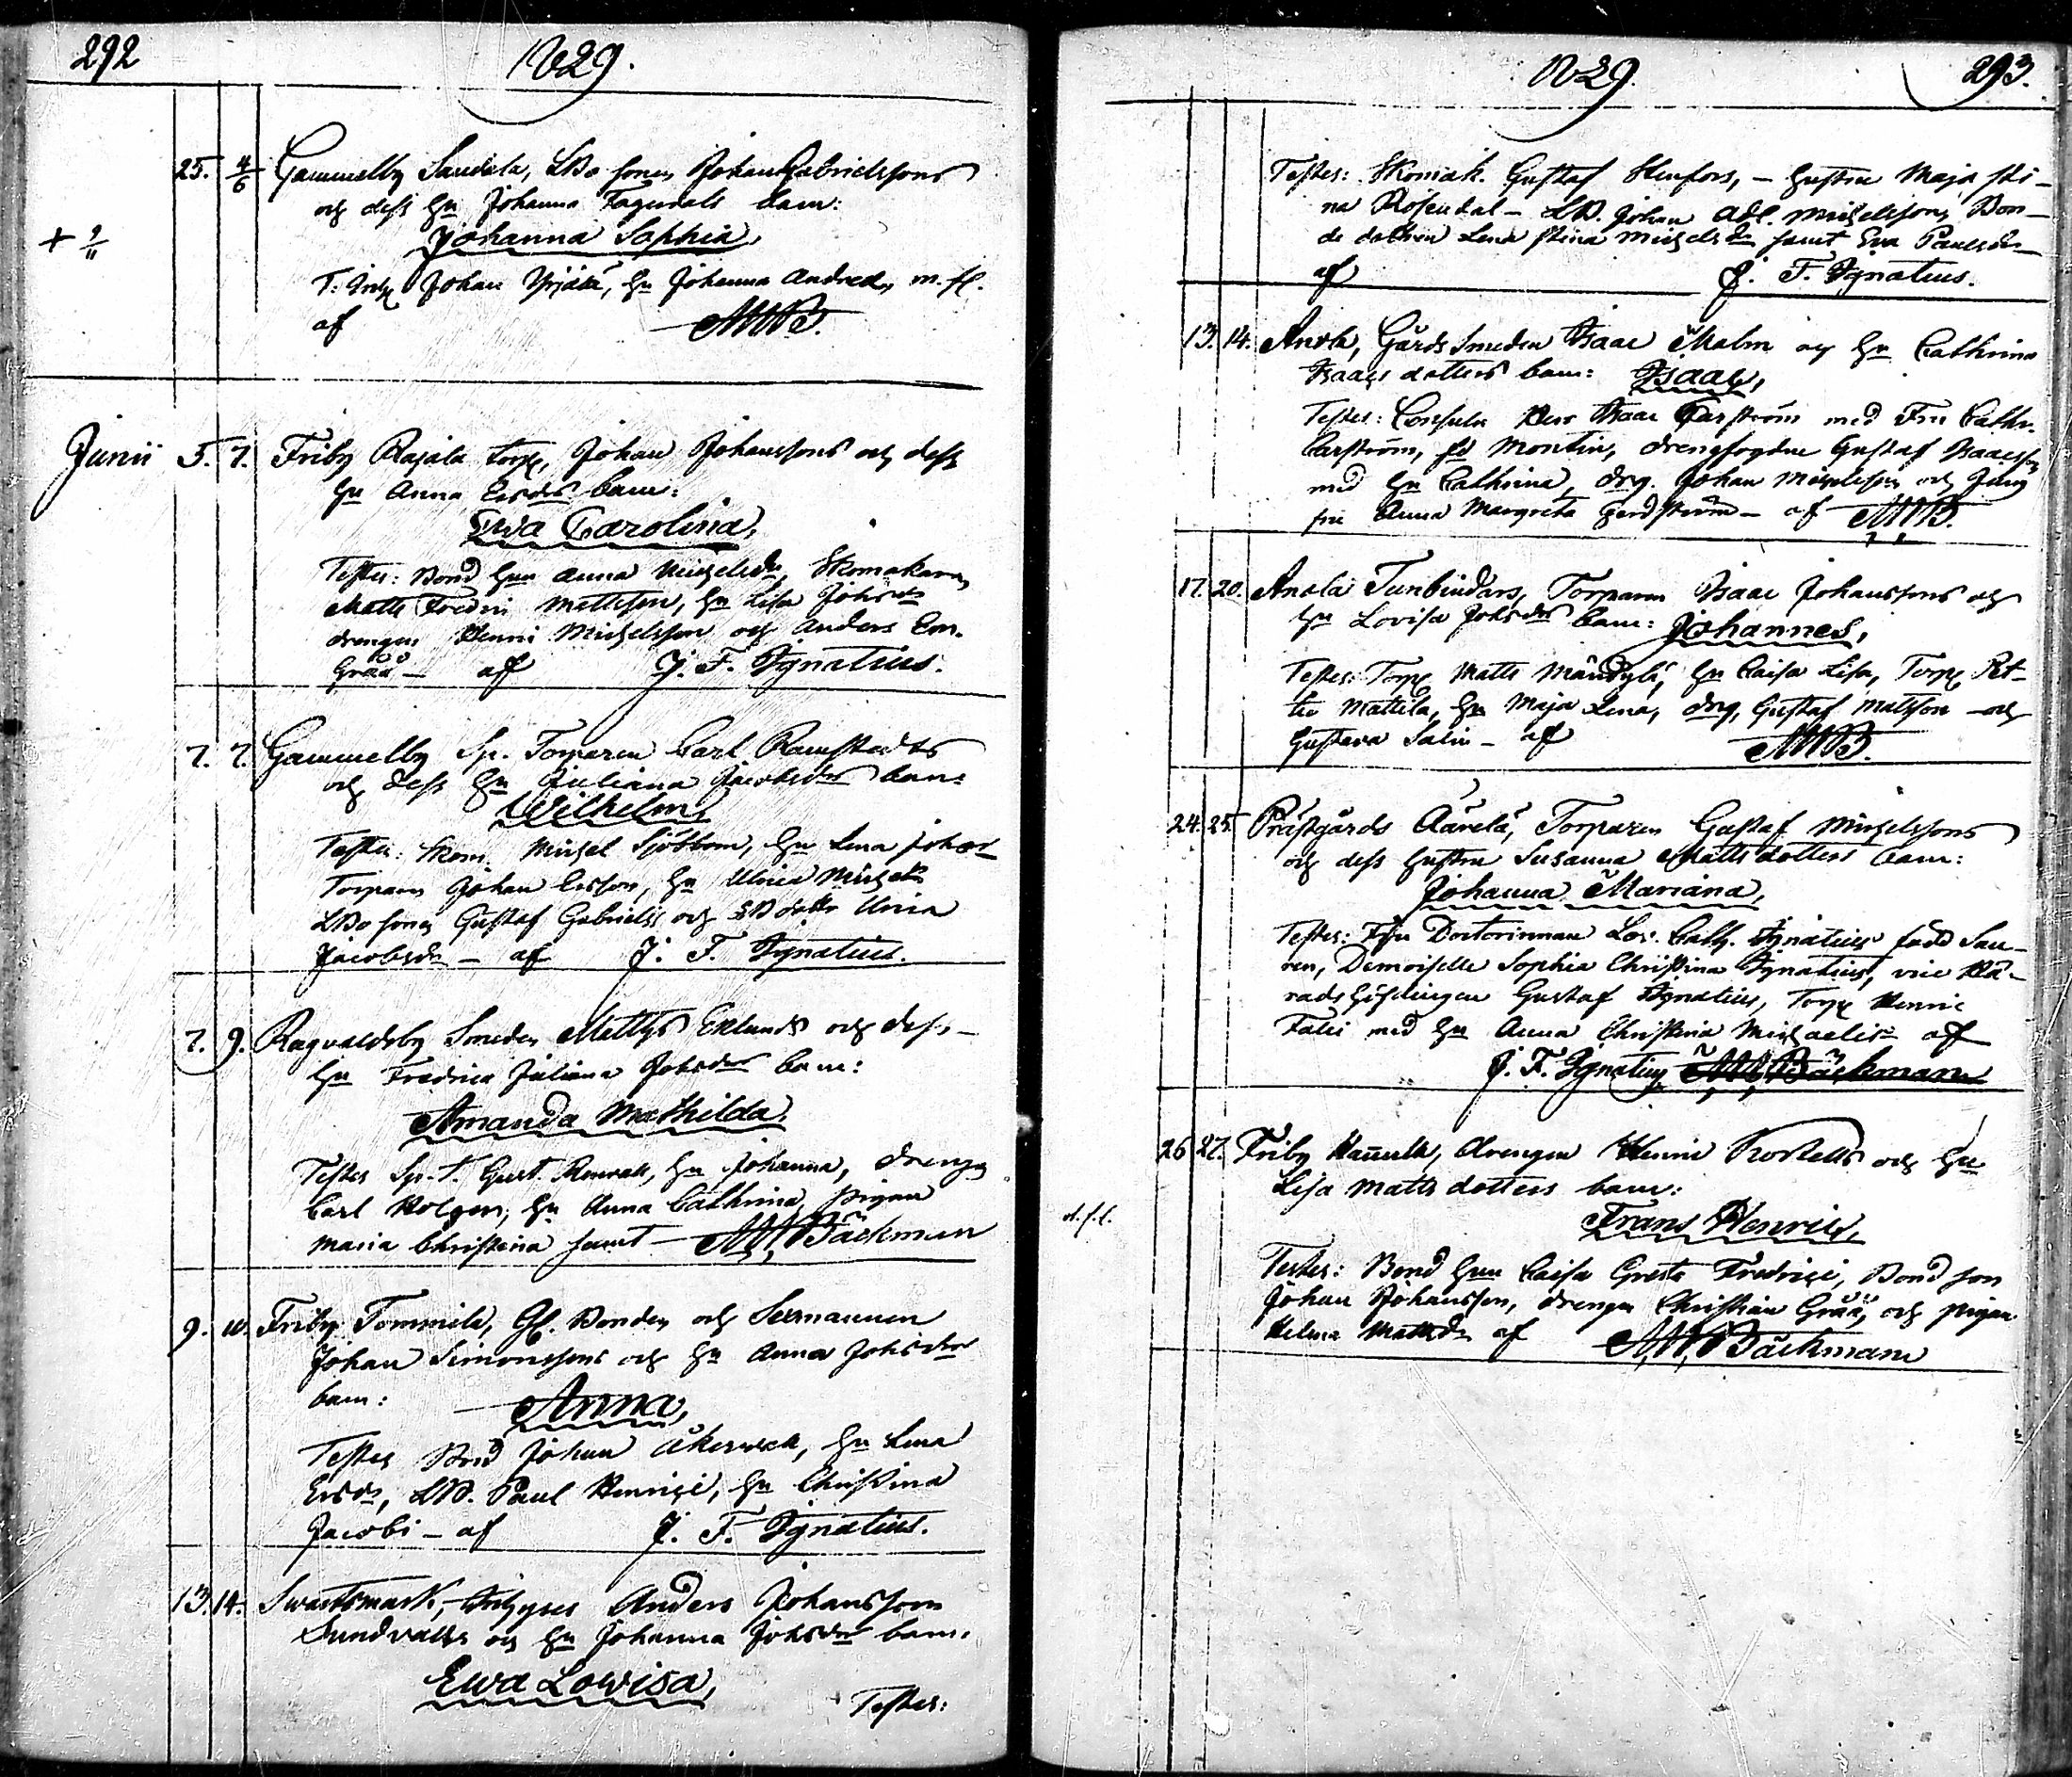 292
1829.
25. 4/6 Gammelby Sandela, LBo sonen Johan Gabrielssons
och dess Hu Johanna Fagerdals barn:
+ 9/11
Johanna Sophia,
T: Johan Yrjälä, Hu Johanna Andreæ, m. fl.
af AWB.
Junii 5. 7. Friby Rajala torp, Johan Johanssons och dess
Hu Anna Ersdrs barn:
Ewa Carolina,
Testes: Bond Hun Anna Michelsdr, Skomakaren
Matts Fredric Mattsson, Hu Lisa Johsdr
drengen Henric Michelsson och Anders
Gråå – af J. F. Ignatius.
7. 7. Gammelby Sp. Torparen Carl Ramstedts
och dess Hu Juliana Jacobsdrs barn:
Wilhelm,
Testes: Skom. Michel Sjöblom, Hu Lena Johsdr
Torparen Johan Ersson, Hu Ulrica Michelsdr
LBo sonen Gustaf Gabrielss och LB dottr Ulrica
Jacobsdr – af J. F. Ignatius.
7. 9. Ragvaldsby Smeden Matts Eklunds och dess
Hu Fredrica Juliana Johsdrs barn:
Amanda Mathilda,
Testes Sp. T. Gust. Renvall, Hu Johanna, drengen
Carl Holgers, Hu Anna Cathrina, pigan
Maria Christina samt AW Bäckman
9. 10. Friby Tommila, Gl. Bonden och Sexmannen
Johan Simonssons och Hu Anna Johsdrs
barn: Anna,
Testes Bond Johan Åkerwall, Hu Lena
Ersdr, LB. Paul Henrici, Hu Christina
Jacobi – af J. F. Ignatius.
13. 14. Swartsmark, Anders Johansson
Sundvalls och Hu Johanna Johsdrs barn:
Ewa Lowisa,
Testes:
1829.
293.
Testes: Skomak. Gustaf Stenfors, – hustru Maja Sti-
na Rosendal – LB. Johan Adl. Michelsson, Bon-
de dottren Lena Stina Michelsdr samt Eva Paulsdr
af J. F. Ignatius.
13. 14. Anola, Gårds Smeden Isaac Malm och Hu Cathrina
Isaacs dotters barn: Isaac,
Testes: Consuln Herr Isaac Carström med Fru Cath.
Carström, fd Montin, drengfogden Gustaf Isaacsson
med Hu Cathrina, drg. Johan Michelsson och Jung
fru Anna Margreta – af AWB.
17. 20. Anola Tunbindars, Torparen Isaac Johanssons och
Hu Lovisa Johsdrs barn: Johannes,
Testes: Torp Matts Mändylä, Hu Caisa Lisa, Torp Pet-
ter Mattila, Hu Maja Lena, drg, Gustaf Matsson och
Gustava Salin – af AWB.
24. 25. Prästgårds Äärelä, Torparen Gustaf Michelssons
och dess hustru Susanna Mattsdotters barn:
Johanna Mariana,
Testes: Fru Doctorinnan Lov. Cath. Ignatius född Sau-
ren, Demoiselle Sophia Christina Ignatius, vice Hä-
radshöfdingen Gustaf Ignatius, Torp Henric
Falii med Hu Anna Christina Michaelis af
J. F. Ignatius AW Bäckman
26 27. Friby Hannula, drengen Henric Rostells och Hu
Lisa Matts dotters barn:
d. f. l.
Frans Henric,
Testes: Bond Hun Caisa Greta Fredrici, Bond son
Johan Johansson, drengen Christian Gråå, och pigan
Helena Mattsdr af AW Bäckman